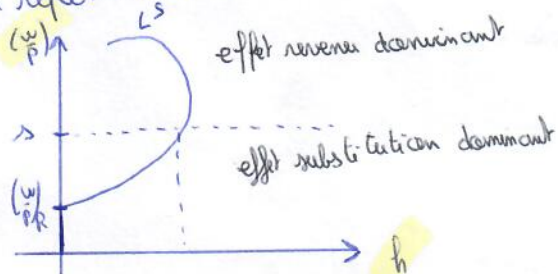 L^S
(w/p)
effet revenu dominant
s
effet substitution dominant
(w/p)R
h